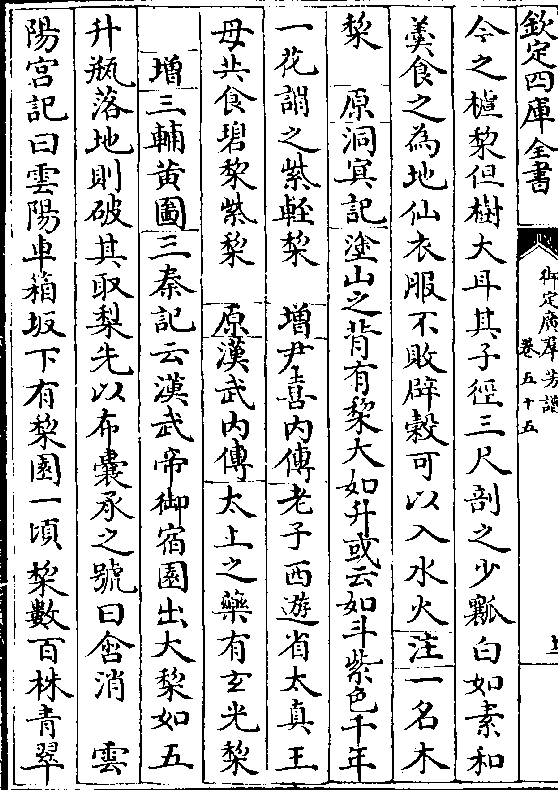 欽定四庫全書
御定廣羣芳譜
卷五十五
上
今之樝棃但樹大耳其子徑三尺剖之少瓤白如素和
羮食之為地仙衣服不敗辟穀可以入水火注一名木
棃　原洞冥記塗山之背有棃大如升或云如斗紫色千年
一花謂之紫輕棃　增尹喜内傳老子西遊省太真王
母共食碧棃紫棃　原漢武内傳太上之藥有玄光棃
增三輔黄圖三秦記云漢武帝御宿園出大棃如五
升瓶落地則破其取梨先以布囊承之號曰含消　雲
陽宫記曰雲陽車箱坂下有棃園一頃棃數百株青翠